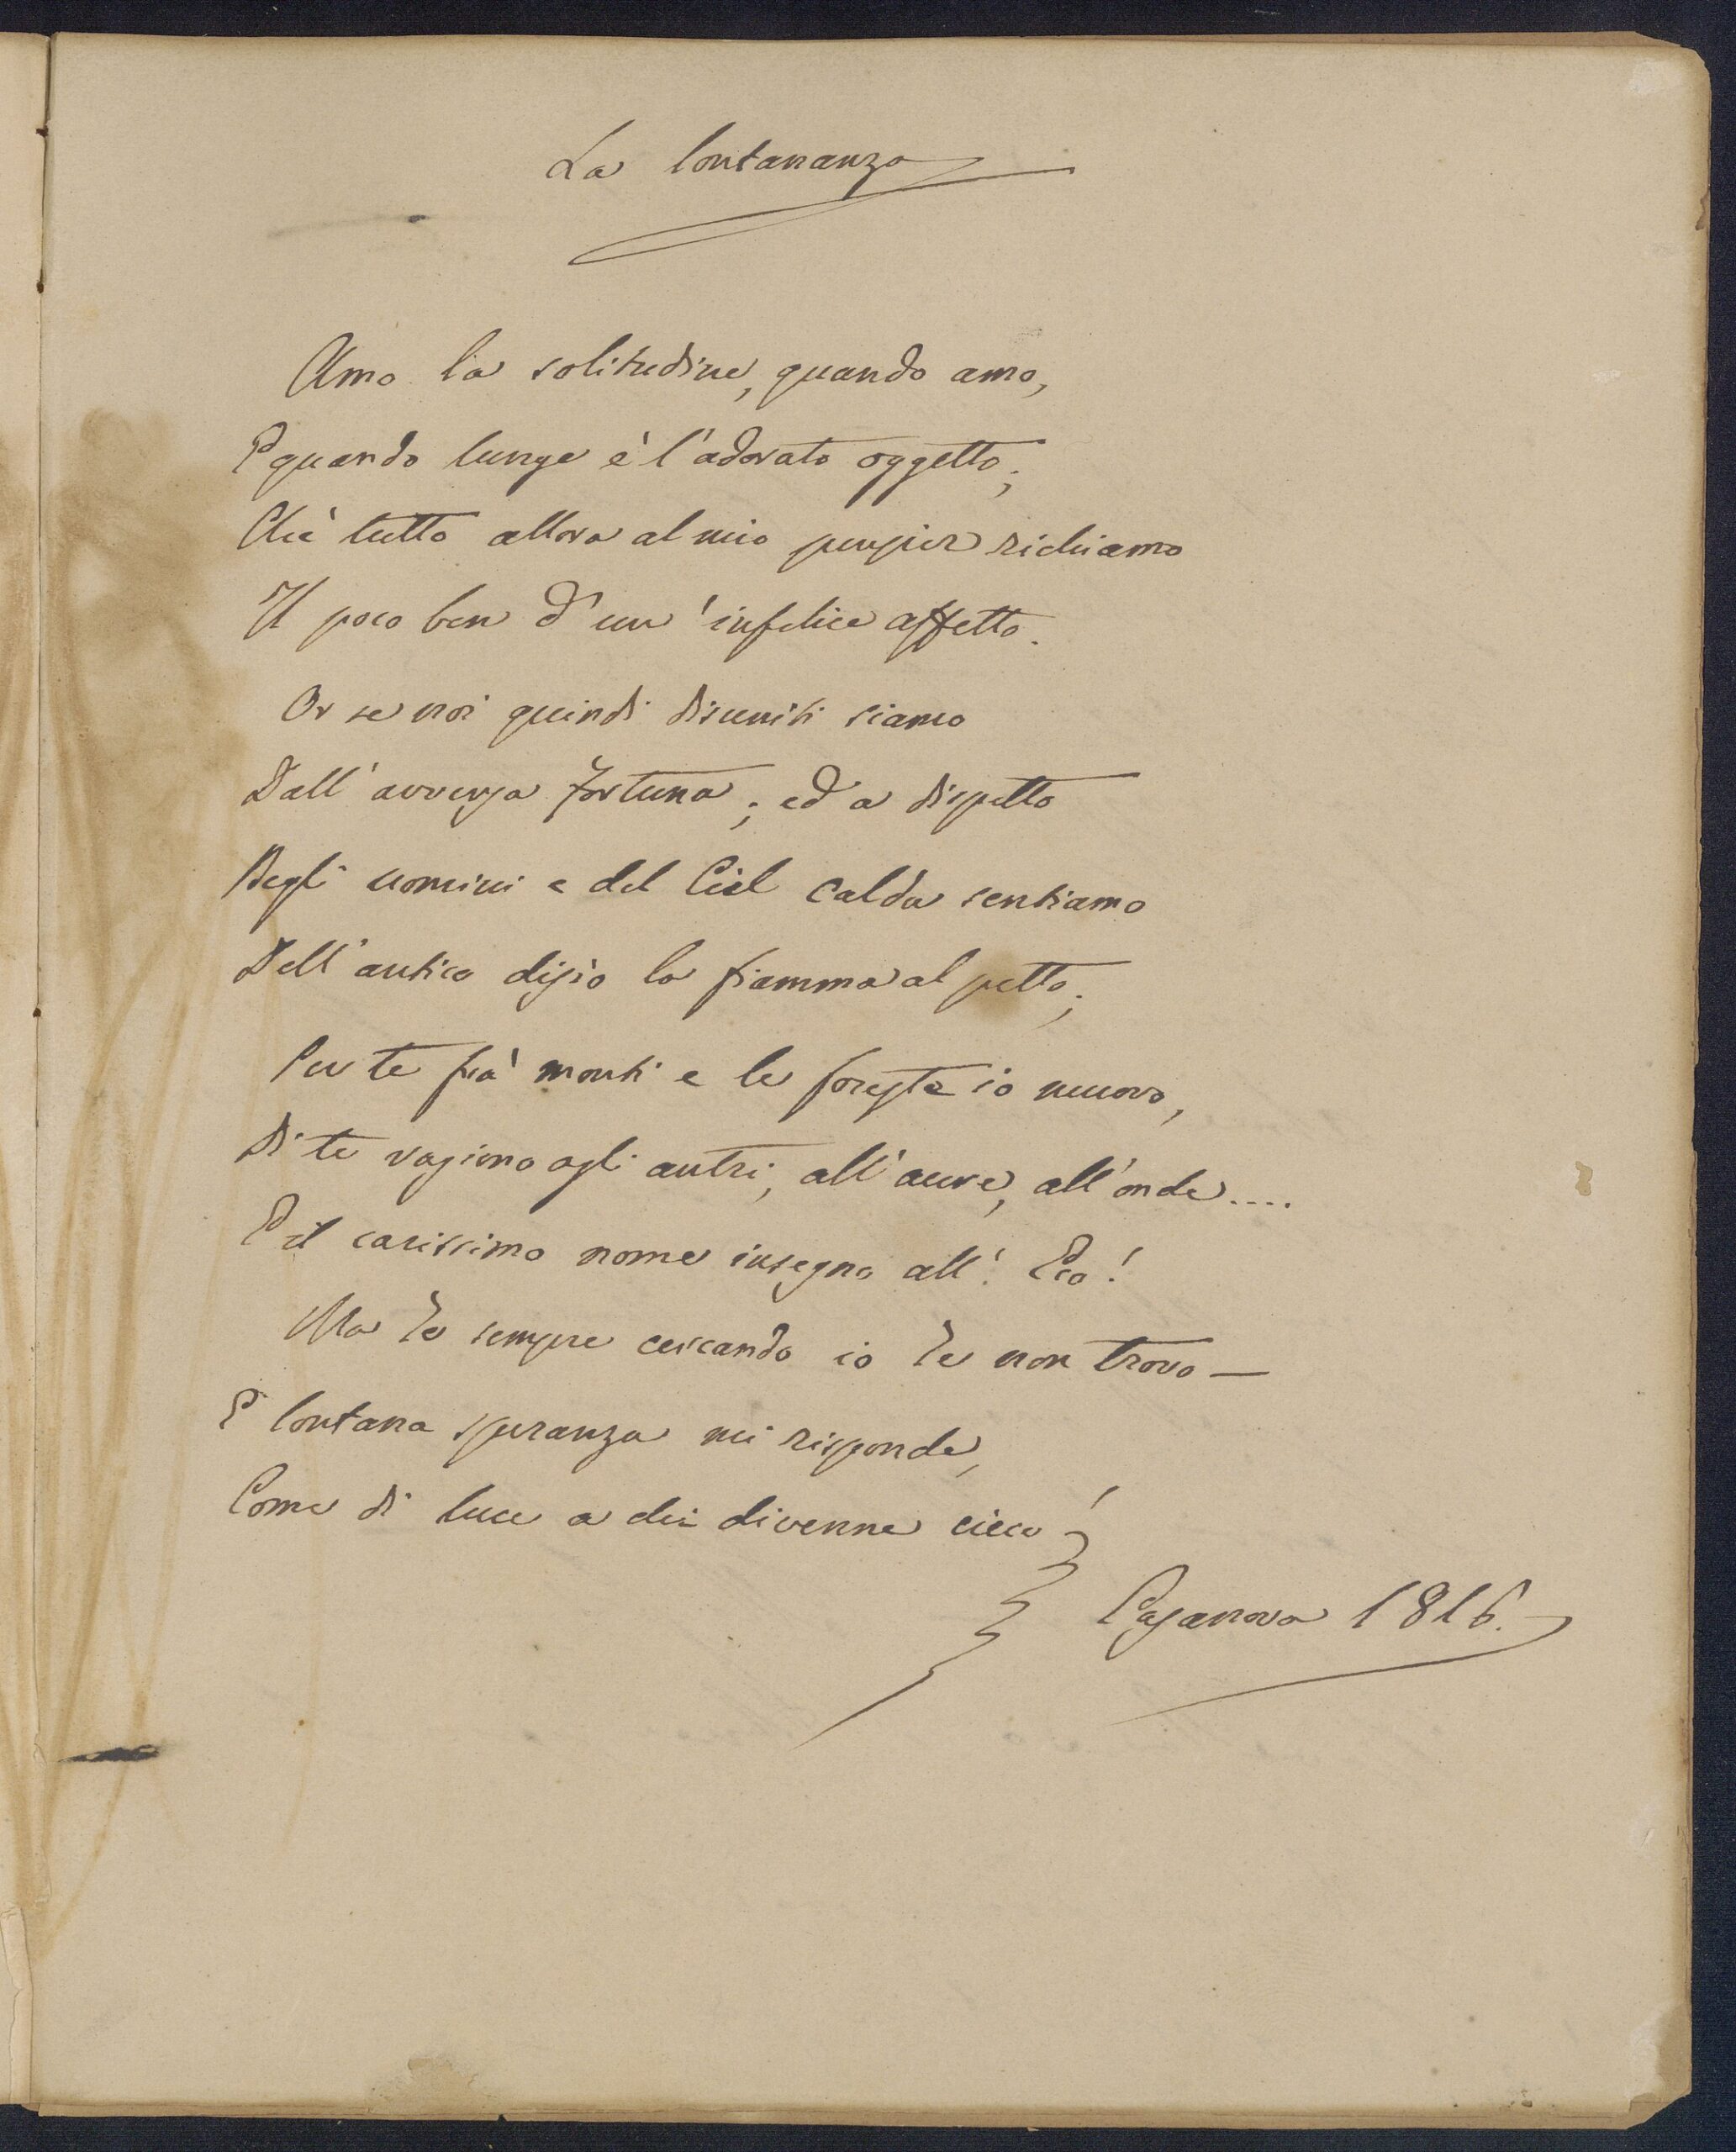 La lontananza
Amo la solitudine, quando amo,
E quando lunge è l'adorato oggetto;
Chè tutto allora al mio pensier richiamo
Il poco ben d'un' infelice affetto.
Or se noi quindi disuniti siamo
Dall'avversa fortuna; ed a dispetto
Degli uomini e del Ciel calda sentiamo
Dell'antico disìo la fiamma al petto;
Per te frà monti e le foreste io muovo,
Di te ragiono agli antri, all'aure, all'onde....
E il carissimo nome insegno all' Eco!
Ma te sempre cercando io te non trovo —
E lontana speranza mi risponde,
Come di luce a chi divenne cieco!
Casanova 1816.